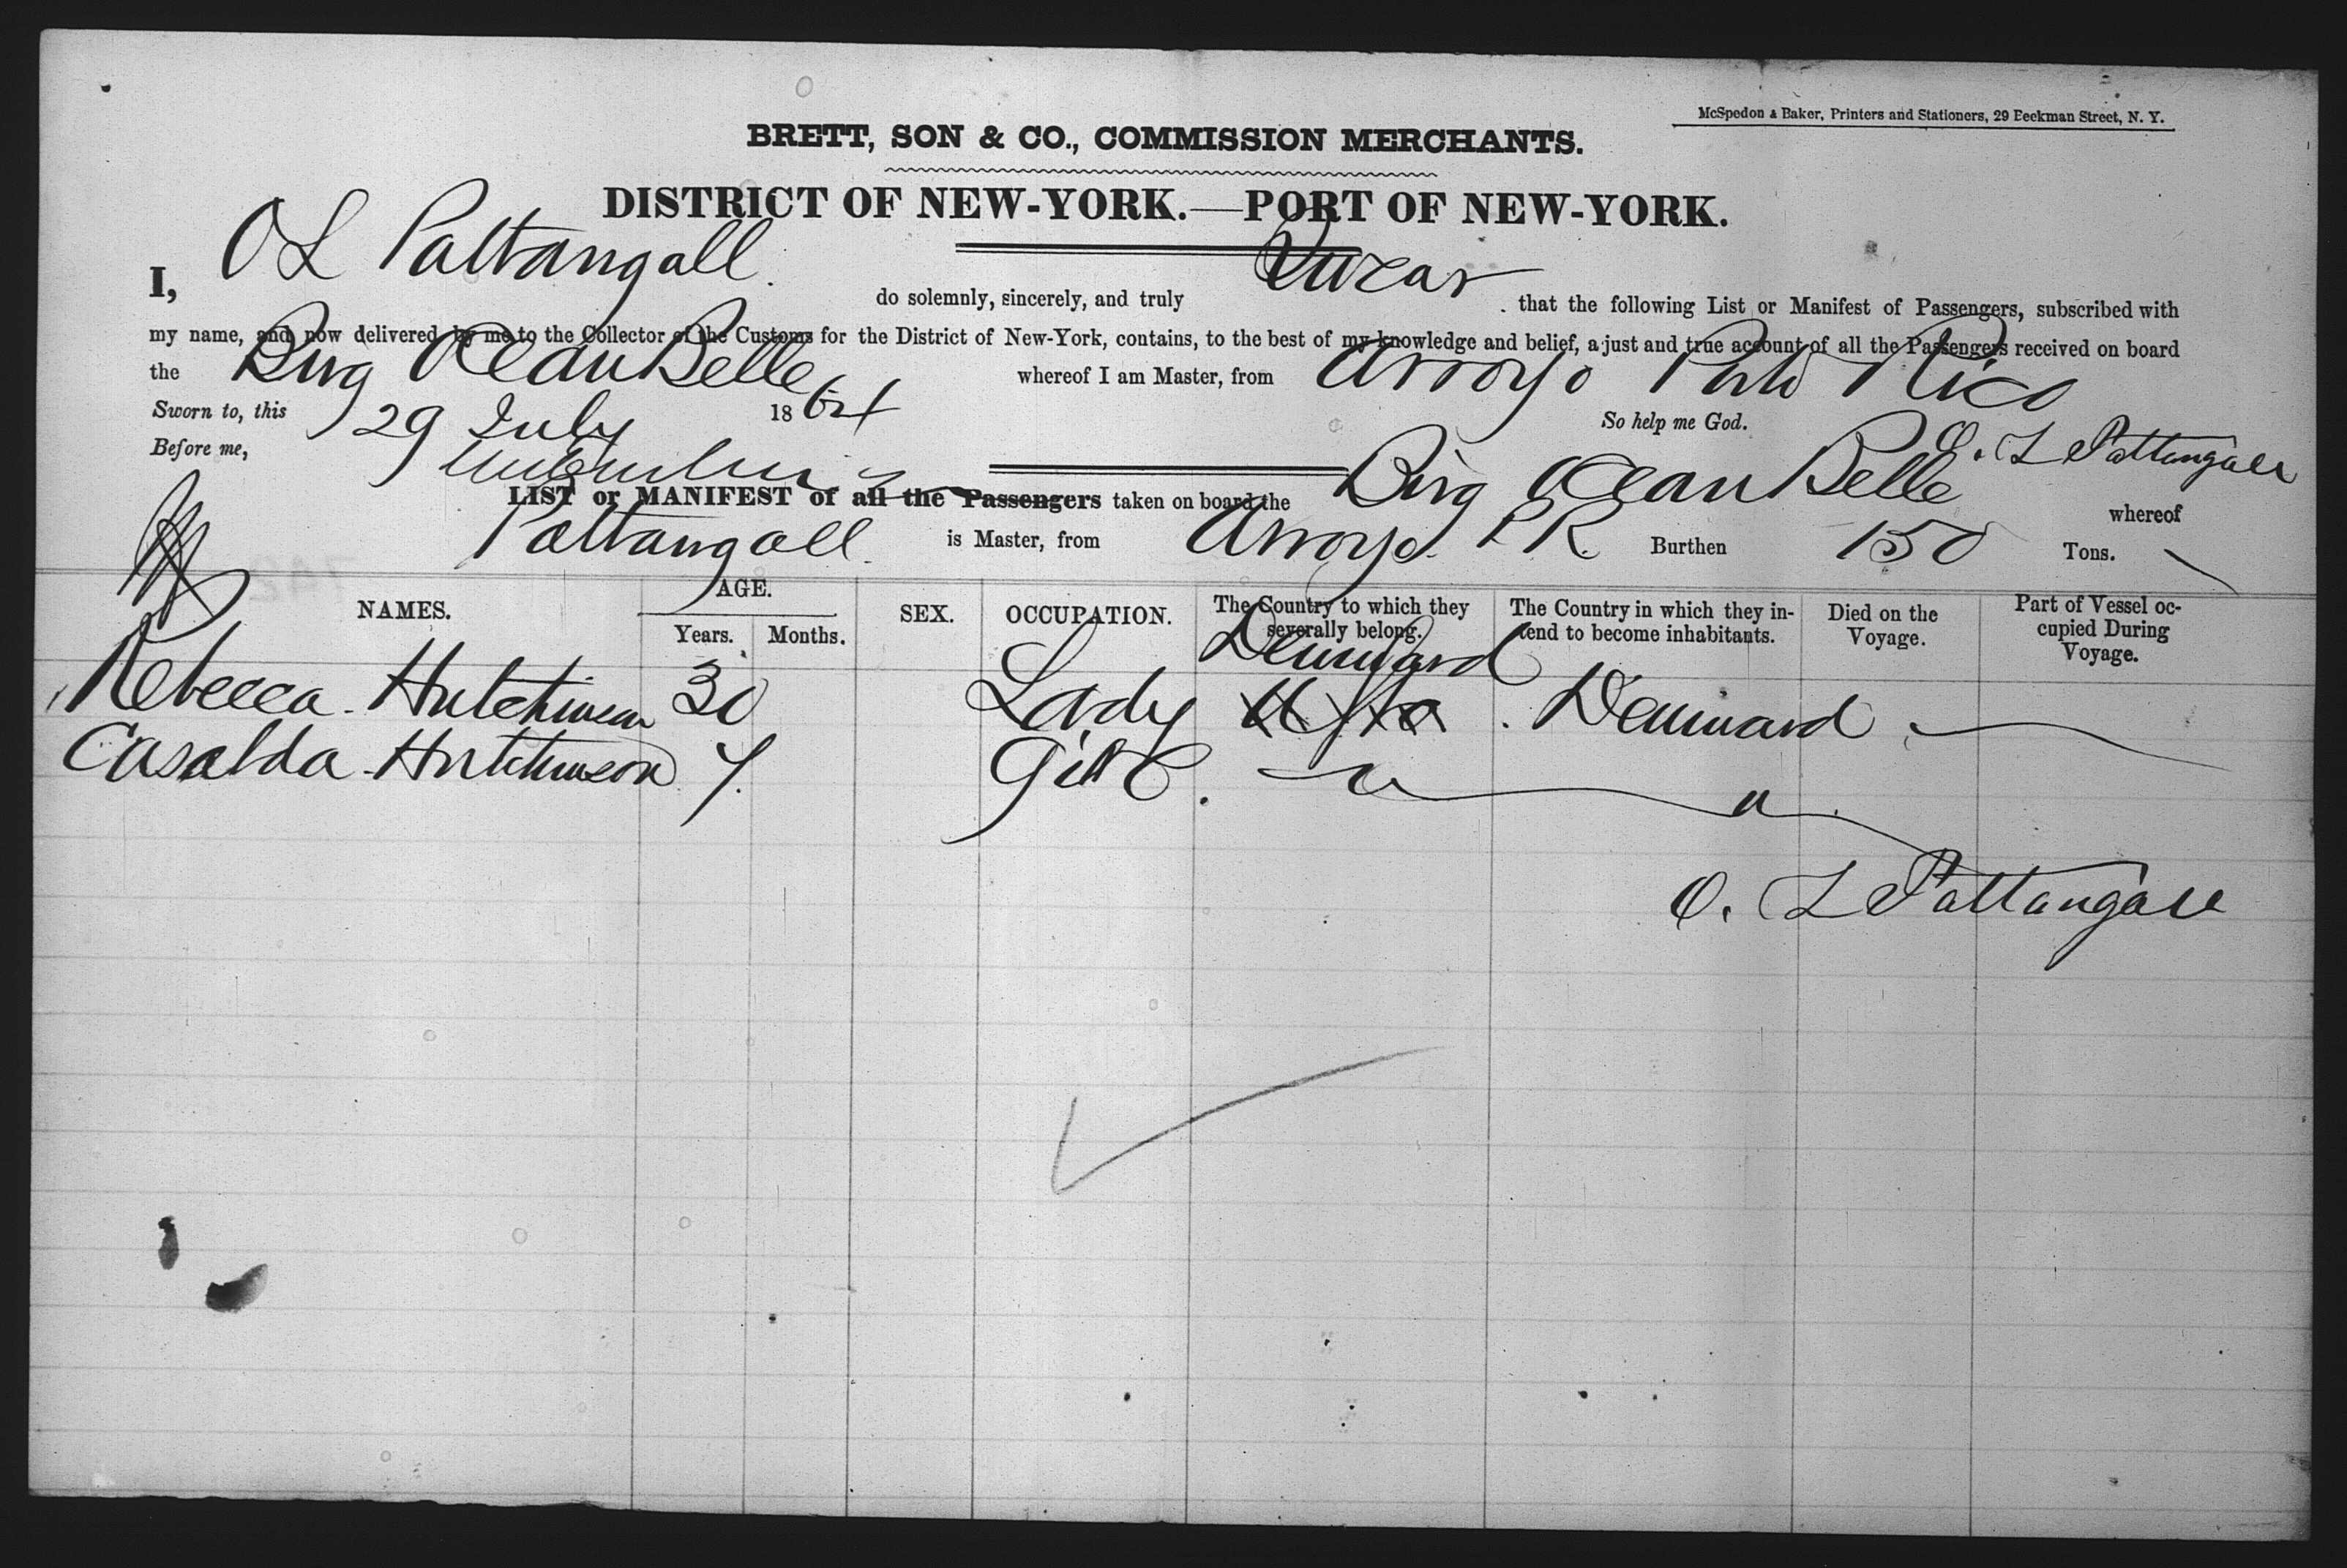 McSpedon & Baker, Printers and Stationers, 29 Beekman Street, N. Y.
BRETT, SON & CO., COMMISSION MERCHANTS.
DISTRICT OF NEW-YORK.—PORT OF NEW-YORK.
I, O L Pattangall do solemnly, sincerely, and truly Swear that the following List or Manifest of Passengers, subscribed with
my name, and now delivered by me to the Collector of the Customs for the District of New-York, contains, to the best of my knowledge and belief, a just and true account of all the Passengers received on board
the Brig Ocean Belle whereof I am Master, from Arroyo Porto Rico
Sworn to, this 29 July 1864 So help me God.
Before me, O. L Pattangall
LIST or MANIFEST of all the Passengers taken on board the Brig Ocean Belle whereof
Pattangall is Master, from Arroyo P R. Burthen 150 Tons.
NAMES. AGE. Years. Months. SEX. OCCUPATION. The Country to which they severally belong. The Country in which they intend to become inhabitants. Died on the Voyage. Part of Vessel occupied During Voyage.
Rebecca Hutchinson 30 Lady Denmard Denmard
Casalda Hutchinson 7. Girl " "
O. L Pattangall